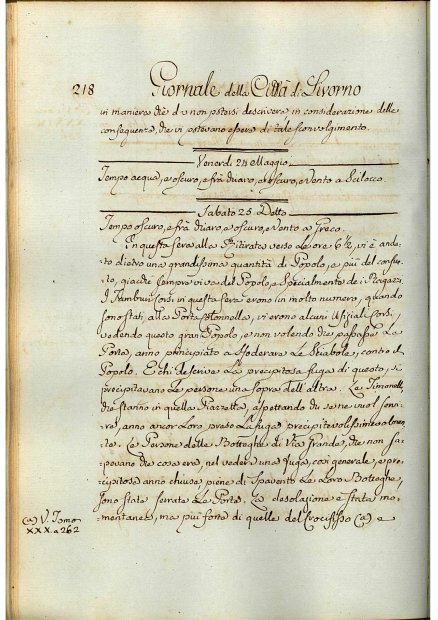 218 Giornale della Città di Livorno
in maniere che da non potersi descrivere in considerazione delle
conseguenze, che vi potevano essere di tale sconvolgimento.
Venerdi 24 Maggio
Tempo acqua, e oscuro, e frà chiaro, e oscuro, e Vento a Scilocco.
Sabato 25. Detto
Tempo oscuro, e frà chiaro, e oscuro, e Vento a Greco.
In questa sera alla Ritirata verso Le ore 6½, vi è anda-
to dietro una grandissima quantità di Popolo, e più del consue-
to, giacchè sempre viva del Popolo, e Specialmente de i Ragazzi.
I Tamburi Corsi in questa sera erono in molto numero, quando
sono stati alla Porta Colonnella, vi erono alcuni Ufiziali Corsi,
vedendo questo gran Popolo, e non volendo che passasse La
Porta, anno principiato a sfoderare Le Sciabole, contro il
Popolo. E chi descrive La precipitosa fuga di questo, si
precipitavano Le persone una sopra dell'altra. Le Timonelle
che stanno in quella Piazzetta, aspettando chi se ne vuol servi-
re, anno ancor Loro, preso La fuga precipitevolissimevolmen-
te. Le Persone delle Botteghe di Via Grande, che non sa-
pevano che cosa era, nel vedere una fuga, così generale, e pre-
cipitosa anno chiuso, piene di Spavento Le Loro Botteghe,
sono state serrate Le Porte. La desolazione è stata mo-
mentanea, ma più forte di quelle del Crocifisso (a) e
(a) V. Tomo
XXX. a 262